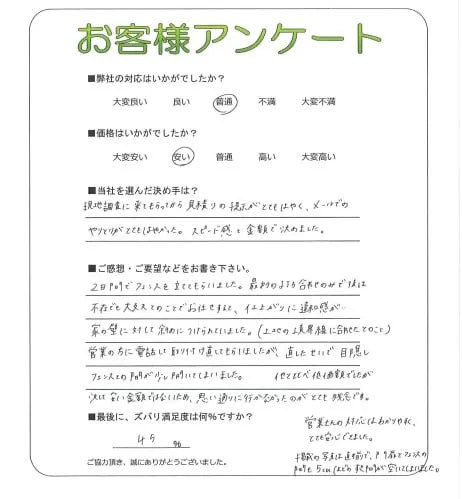 お客様アンケート
■弊社の対応はいかがでしたか？
大変良い 良い 普通 不満 大変不満
■価格はいかがでしたか？
大変安い 安い 普通 高い 大変高い
■当社を選んだ決め手は？
現地調査に来てもらってから見積りの提示がとてもはやく、メールでの
やりとりがとてもはやかった。スピード感と金額で決めました。
■ご感想・ご要望などをお書き下さい。
2日間でフェンスを立ててもらいました。最初の打ち合わせのみで後は
不在でも大丈夫とのことでお任せすると、仕上がりに違和感が…
家の壁に対して斜めにつけられていました。（土地の境界線に合わせたとのこと）
営業の方に電話して取り付け直してもらいましたが、直したせいで目隠し
フェンスとの間が少し開いてしまいました。 他と比べ低価額でしたが
決して安い金額ではないため、思い通りに行かなかったのがとても残念です。
■最後に、ズバリ満足度は何%ですか？
45 %
ご協力頂き、誠にありがとうございました。
営業さんの対応はわかりやすく、
とても安心できました。
掲載の写真は直前で、門扉とフェンスの
間も5cmほどの隙間が空いてしまいました。